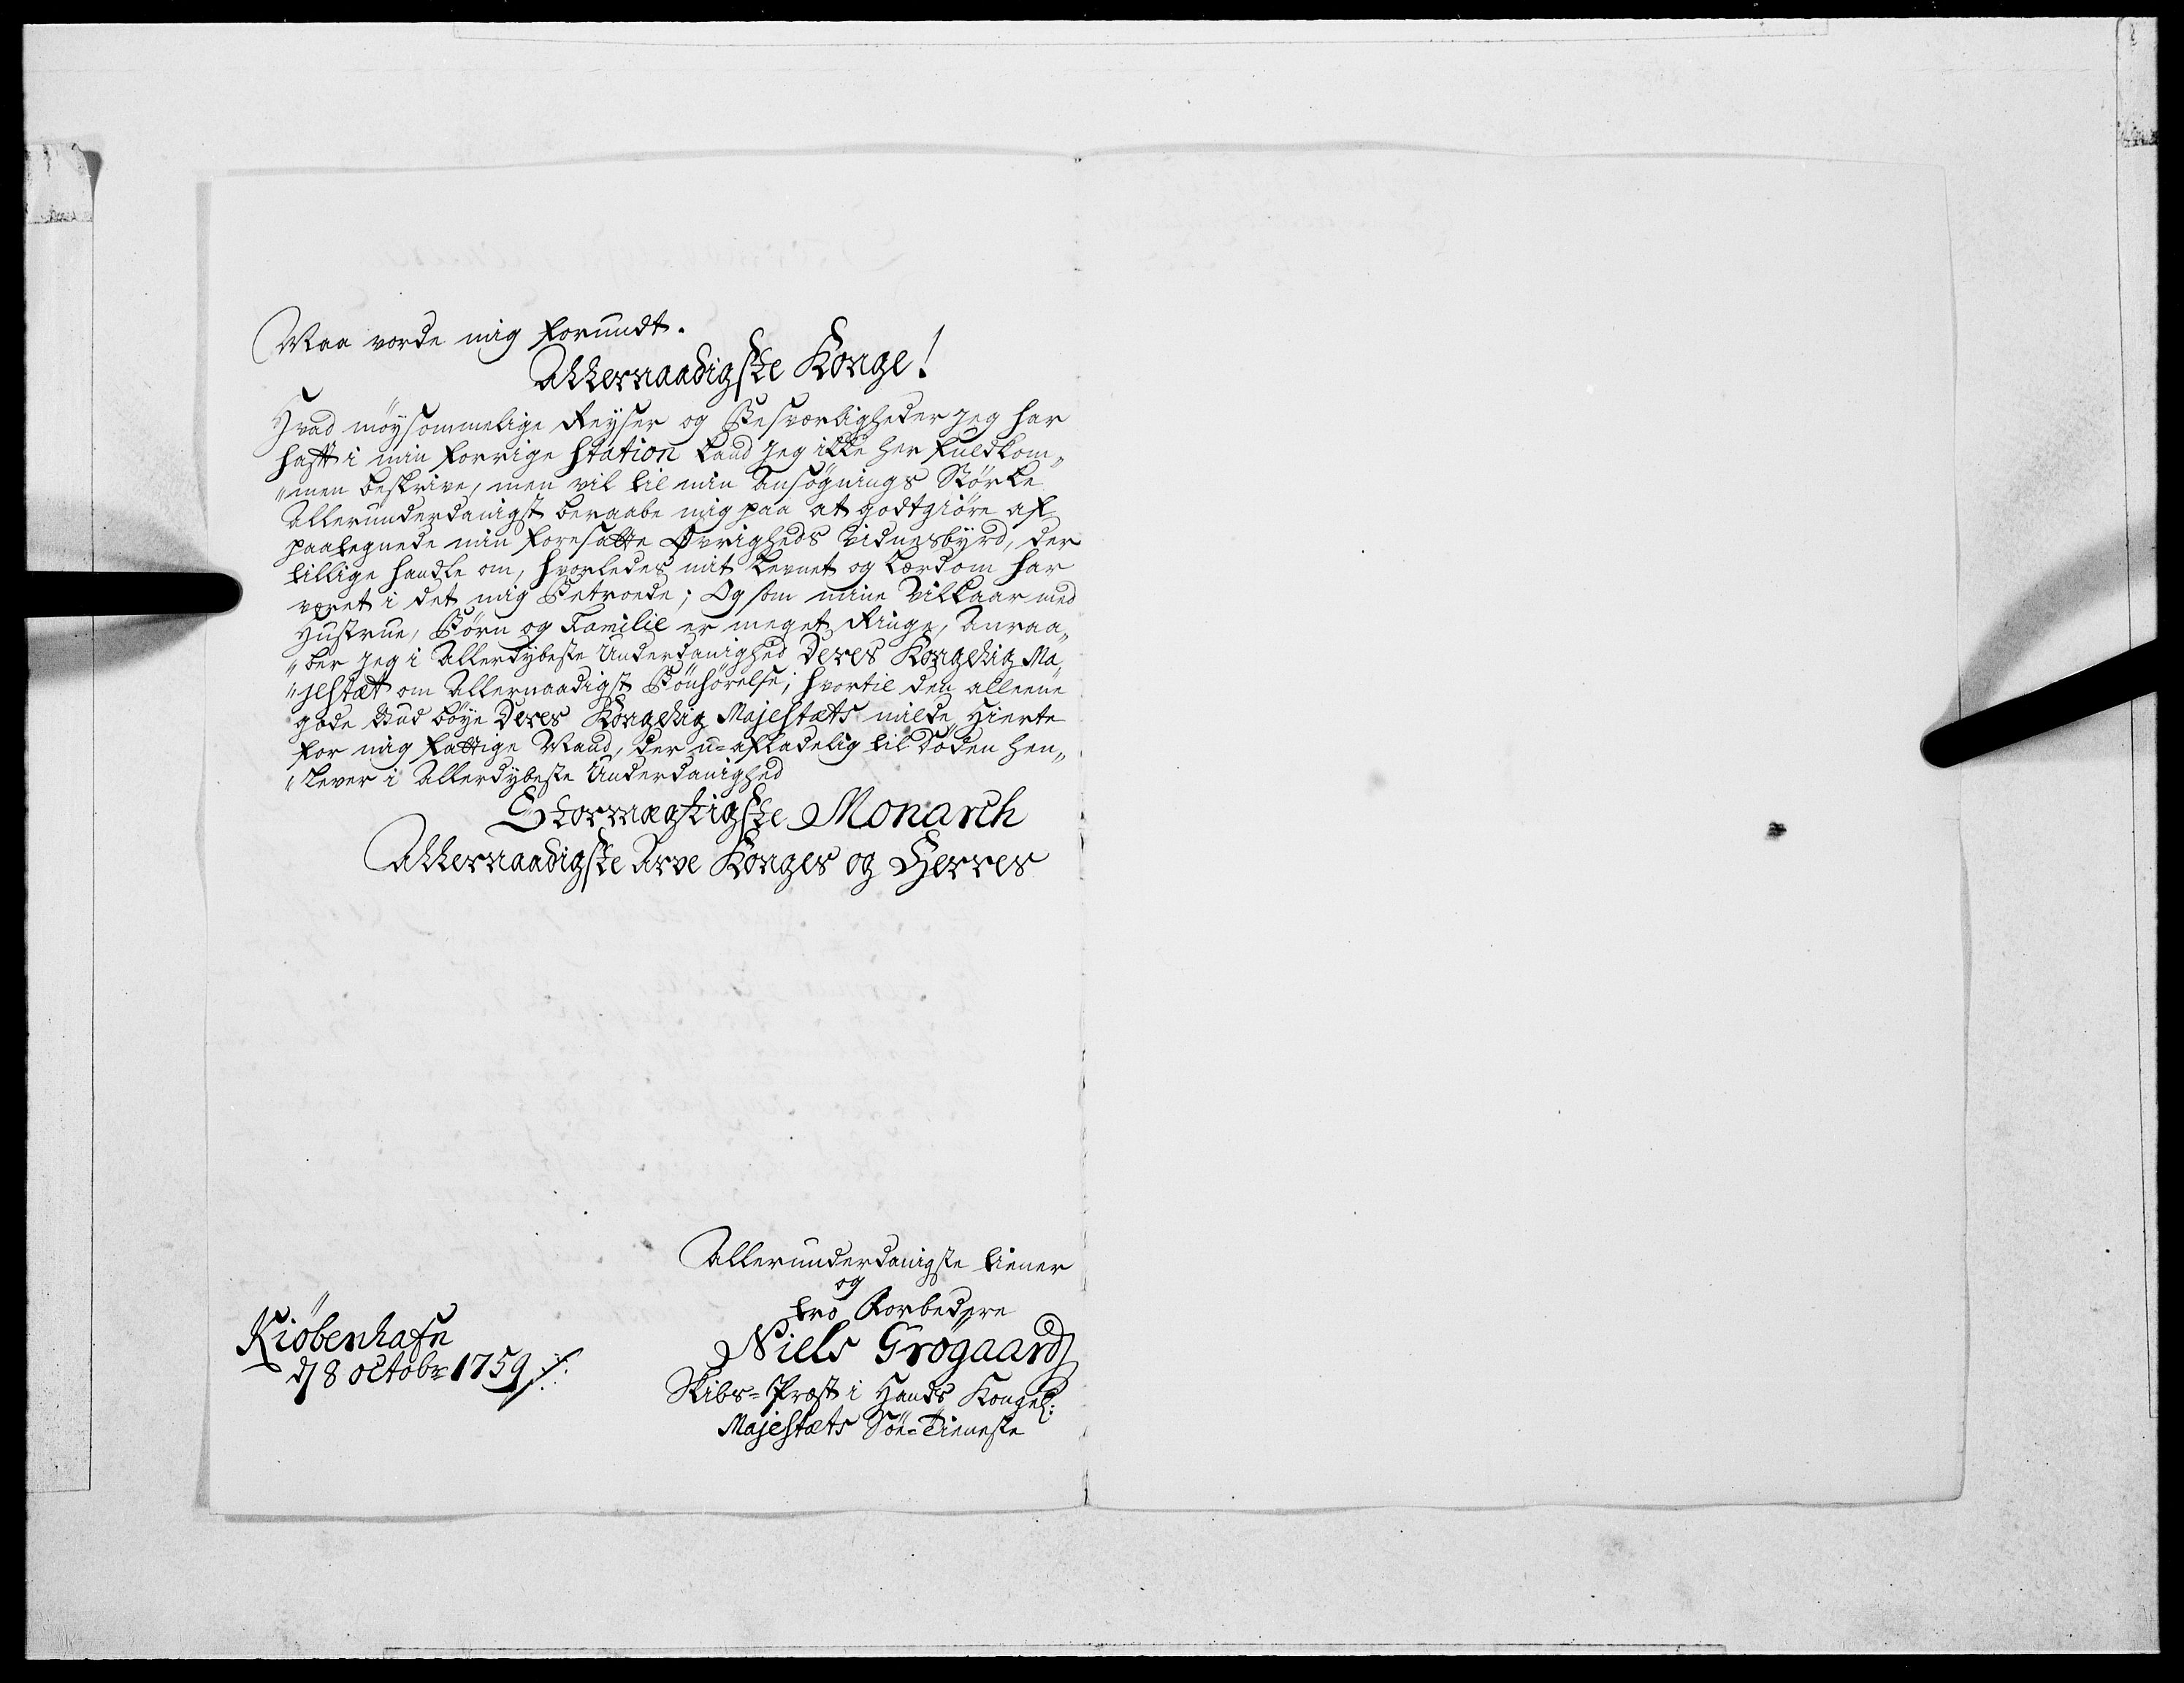 Maa vorde mig forundt.
Allernaadigste Konge!
Hvad möysommelige Reyser og Besværligheder jeg har
haft i min forrige Station kand Jeg ikke her fuldkom„
„men beskrive, men vil til min Ansögnings Störke
Allerunderdanigst beraabe mig paa at godtgiöre af
paategnede min foresatte Øvrigheds Vidnesbyrd, der
tillige handle om, hvorledes mit Levnet og Lærdom har
været i det mig Betroede; Og som mine Vilkaar med
Hustrue, Börn og Familie er meget Ringe, Anraa„
„ber jeg i Allerdybeste Underdanighed Deres Kongelig Ma„
„jestæt om Allernaadigst Bönhörelse; hvortil den alleene
gode Gud böye Deres Kongelig Majestæts milde Hierte
for mig fattige Mand, der u=afladelig til Döden hen„
„lever i Allerdybeste Underdanighed
Stormægtigste Monarch
Allernaadigste Arve Konges og Herres
Allerunderdanigste tiener
og
tro Forbedere
Niels Grögaard
Skibs=Præst i Hands Kongel:
Majestæts Söe=Tieneste
Kiöbenhafn
d 8 octobr 1759 ./.